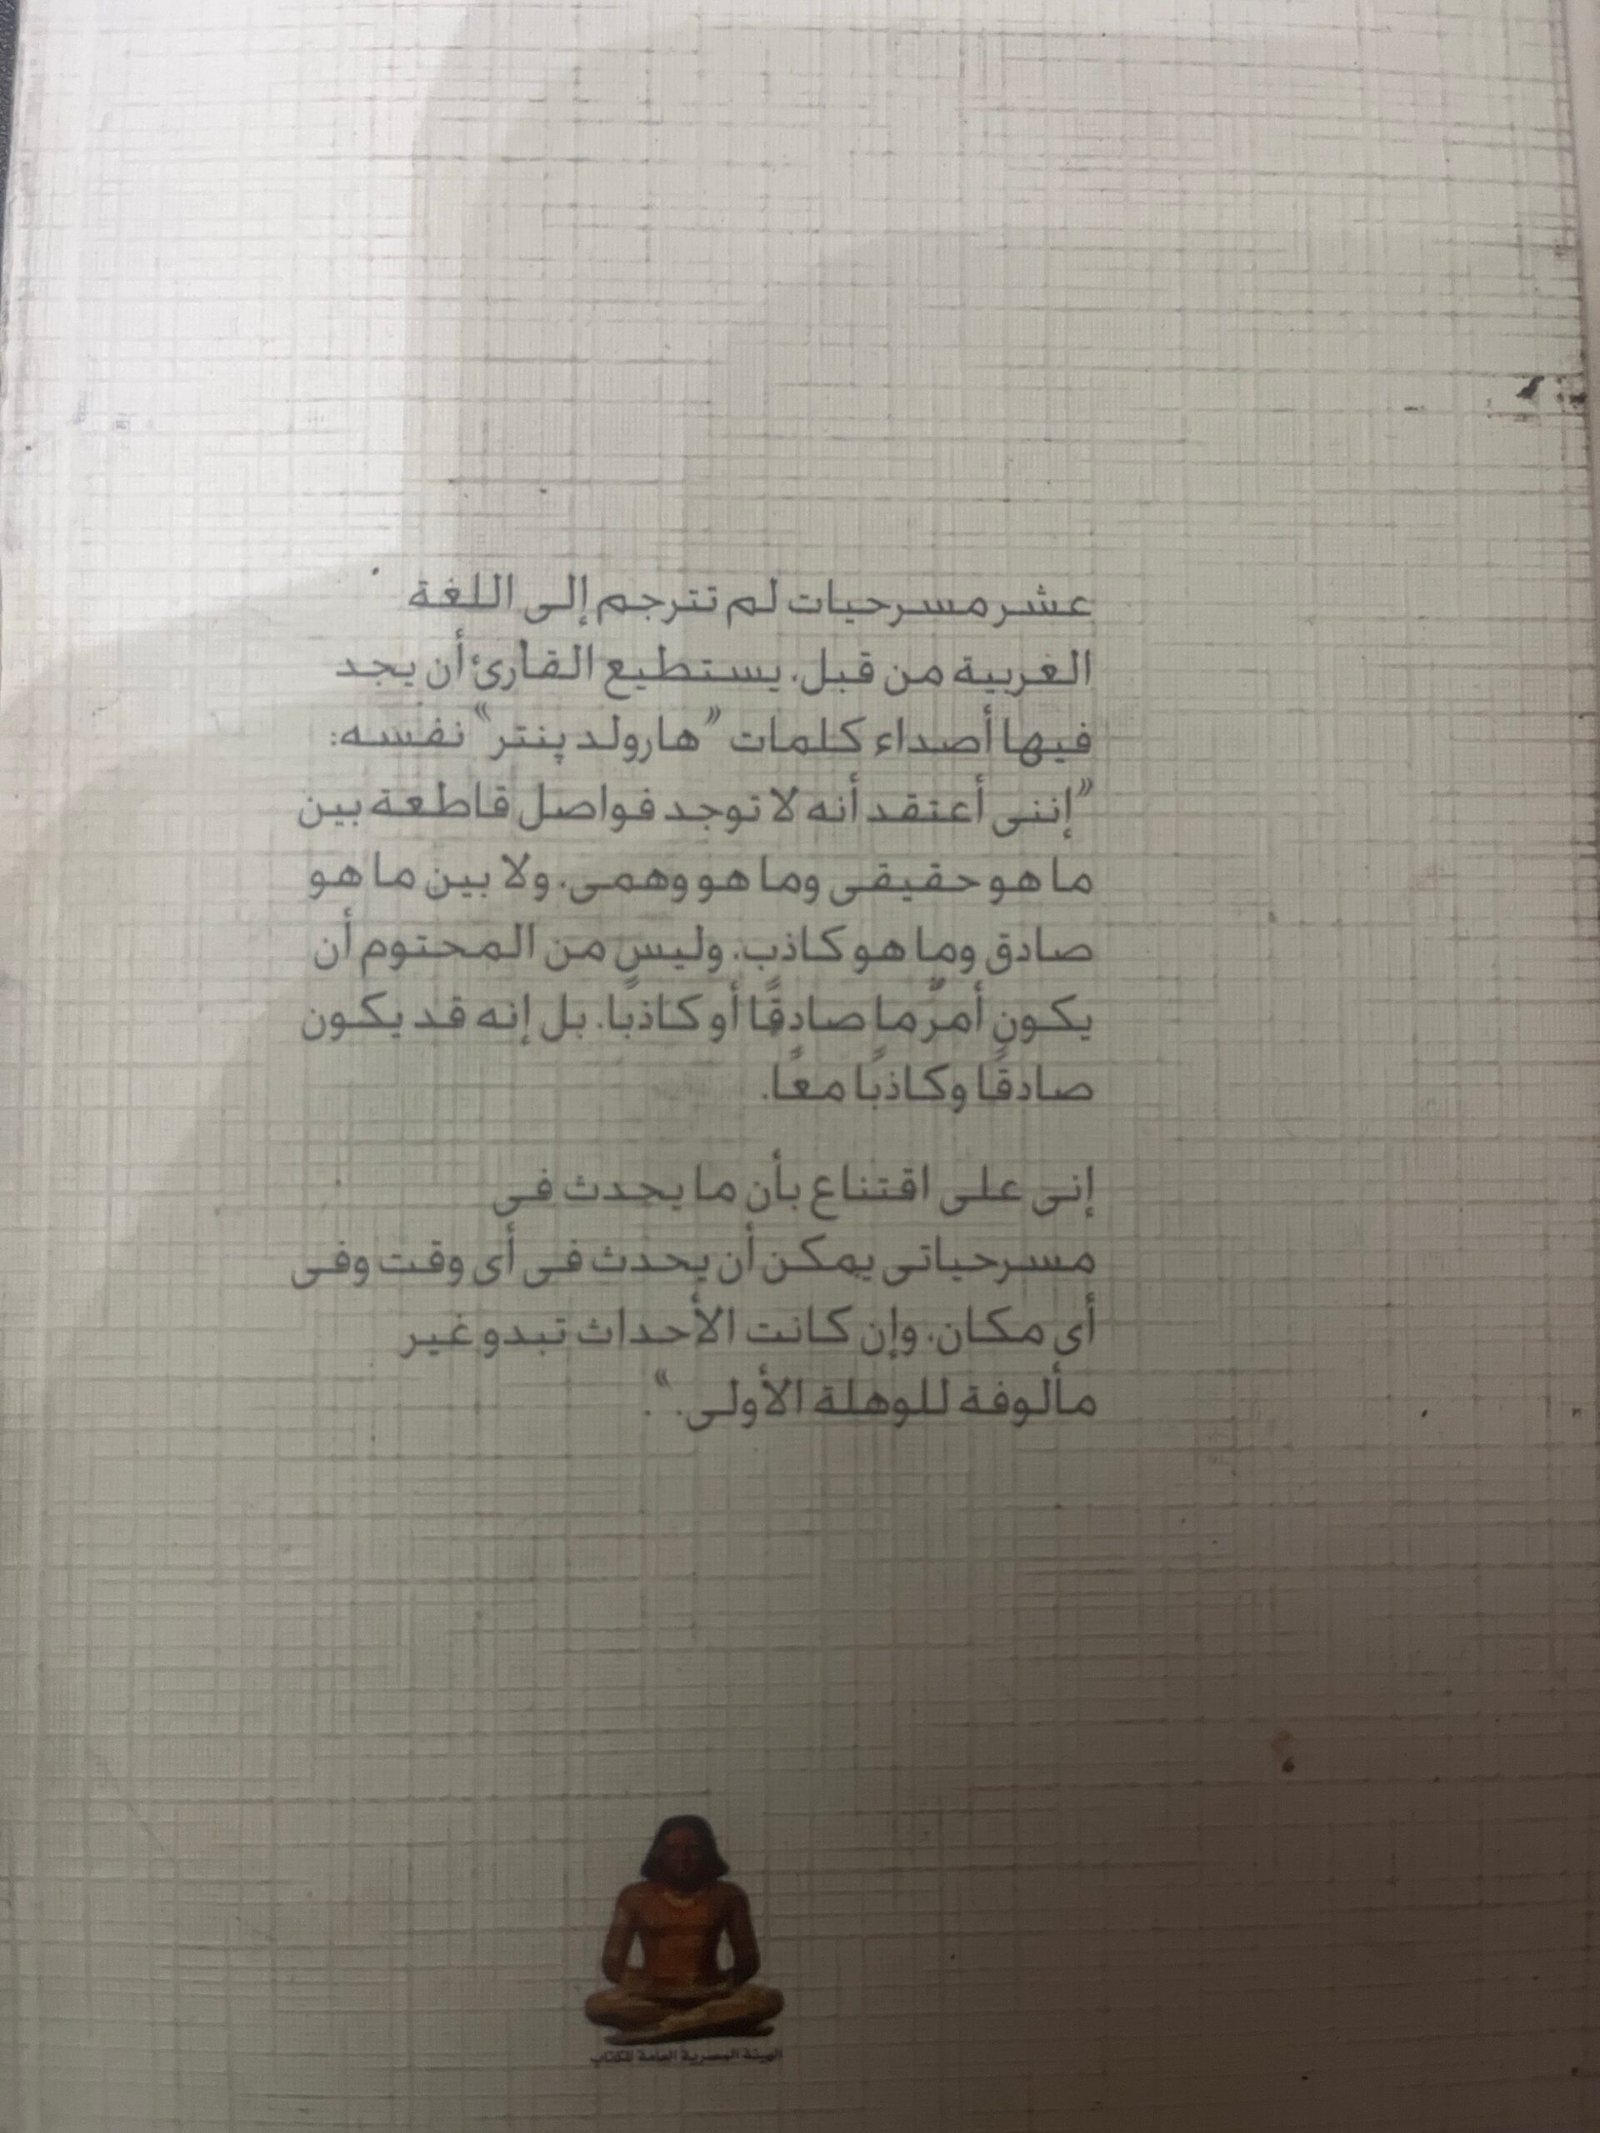 عشر مسرحيات لم تترجم إلى اللغة
العربية من قبل. يستطيع القارئ أن يجد
فيها أصداء كلمات "هارولد پنتر" نفسه:
"إننى أعتقد أنه لا توجد فواصل قاطعة بين
ما هو حقيقى وما هو وهمى. ولا بين ما هو
صادق وما هو كاذب. وليس من المحتوم أن
يكون أمرٌ ما صادقًا أو كاذبًا. بل إنه قد يكون
صادقًا وكاذبًا معًا.
إنى على اقتناع بأن ما يحدث فى
مسرحياتى يمكن أن يحدث فى أى وقت وفى
أى مكان. وإن كانت الأحداث تبدو غير
مألوفة للوهلة الأولى. ".
الهيئة المصرية العامة للكتاب